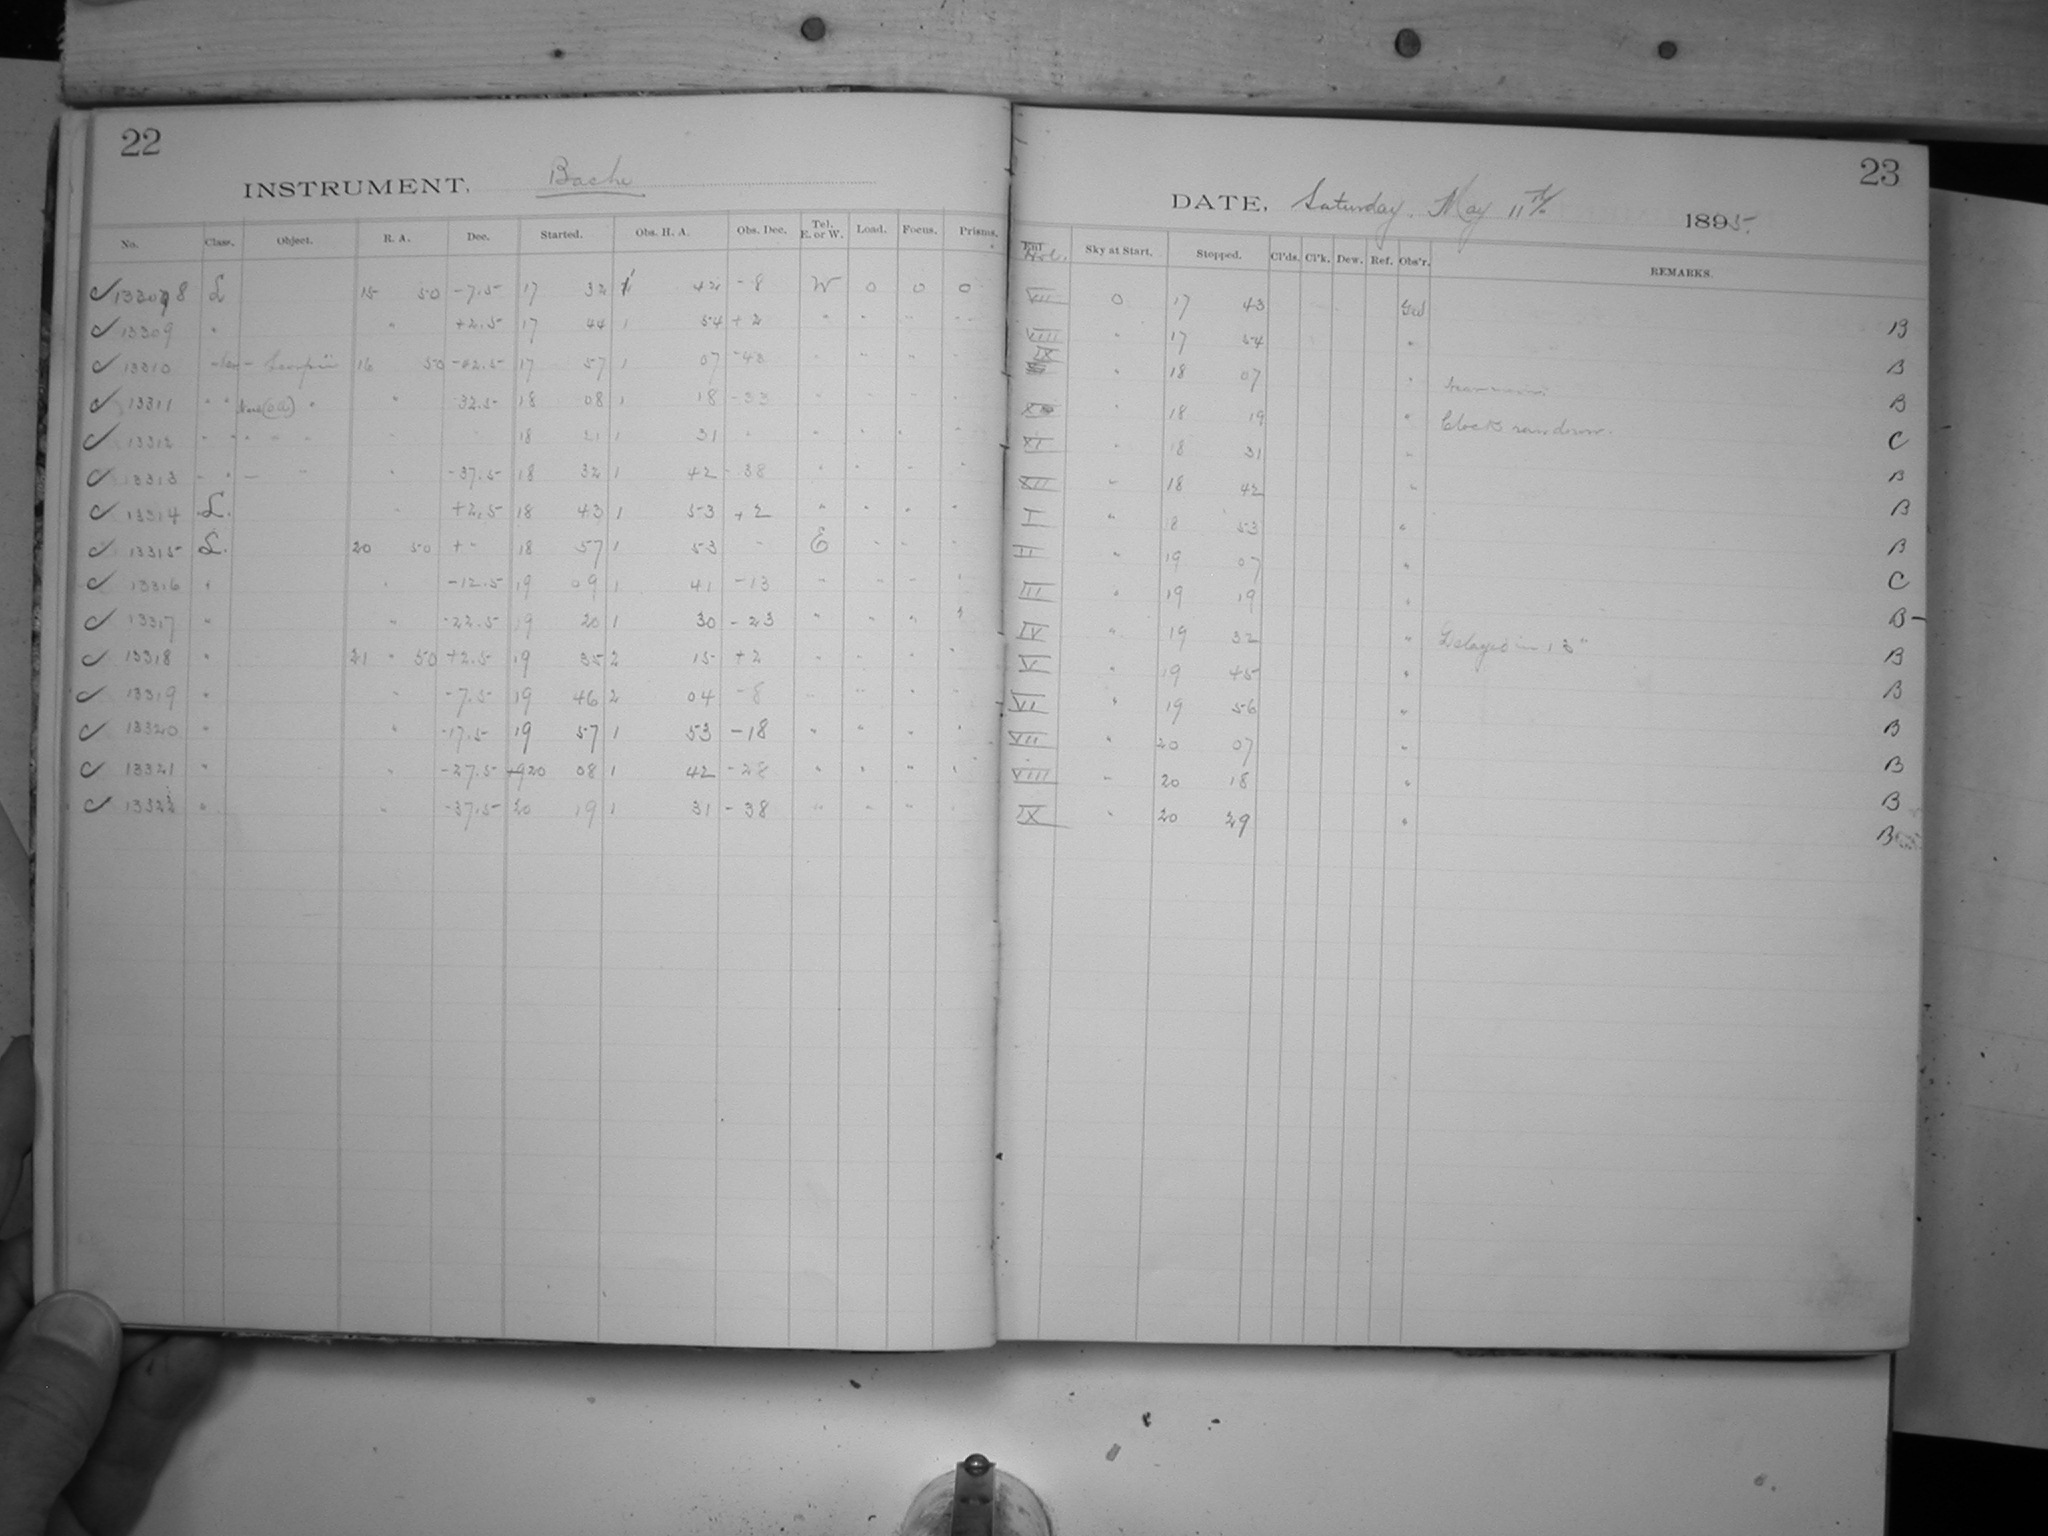 22
INSTRUMENT, Bache
No. Class. Object. R. A. Dec. Started. Obs. H. A. Obs. Dec. Tel. E. or W. Load. Focus. Prisms.
✓ 13308 L 15 50 -7.5 17 32 1 42 -8 W 0 0 0
✓ 13309 " " +2.5 17 44 1 54 +2 " " " "
✓ 13310 - Scorpii 16 50 -42.5 17 57 1 07 -43 " " " "
✓ 13311 " " " " 32.5 18 08 1 18 -33 " " " "
✓ 13312 " " " " " " 18 21 1 31 " " " " "
✓ 13313 - " - " " -37.5 18 32 1 42 -38 " " " "
✓ 13314 L. " +2.5 18 43 1 53 +2 " " " "
✓ 13315 L. 20 50 + " 18 57 1 53 " E " " "
✓ 13316 " " -12.5 19 09 1 41 -13 " " " "
✓ 13317 " " -22.5 19 20 1 30 -23 " " " "
✓ 13318 " 21 " 50 +2.5 19 35 2 15 +2 " " " "
✓ 13319 " " -7.5 19 46 2 04 -8 " " " "
✓ 13320 " " -17.5 19 57 1 53 -18 " " " "
✓ 13321 " " -27.5 20 08 1 42 -28 " " " "
✓ 13322 " " -37.5 20 19 1 31 -38 " " " "
23
DATE, Saturday, May 11th 1895.
Hol. Sky at Start. Stopped. Cl'ds. Cl'k. Dew. Ref. Obs'r. REMARKS.
VII 0 17 43 B
VIII " 17 54 " B
IX " 18 07 " Near moon. B
" 18 19 " Clock ran down. C
XI " 18 31 " B
XII " 18 42 " B
I " 18 53 " B
II " 19 07 " C
III " 19 19 " B-
IV " 19 32 " Delayed in 13" B
V " 19 45 " B
VI " 19 56 " B
VII " 20 07 " B
VIII " 20 18 " B
IX " 20 29 " B